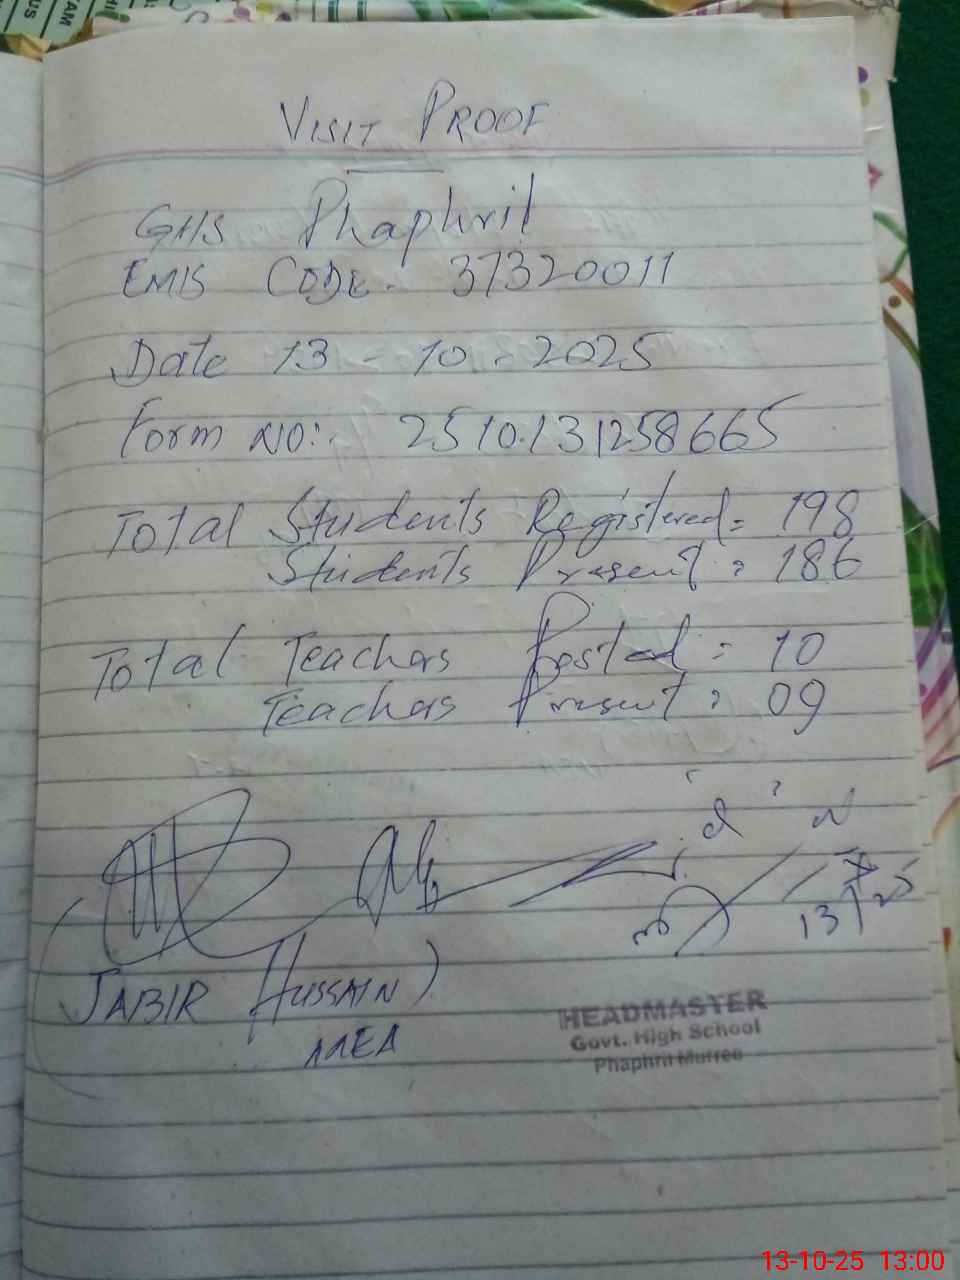 VISIT PROOF
GHS Phaphril
EMIS CODE. 37320011
Date 13 - 10 - 2025
Form NO:. 2510131258665
Total Students Registered = 198
Students Present = 186
Total Teachers Posted = 10
Teachers Present = 09
13
25
(JABIR HUSSAIN)
MEA
HEADMASTER
Govt. High School
Phaphril Murree
13-10-25 13:00